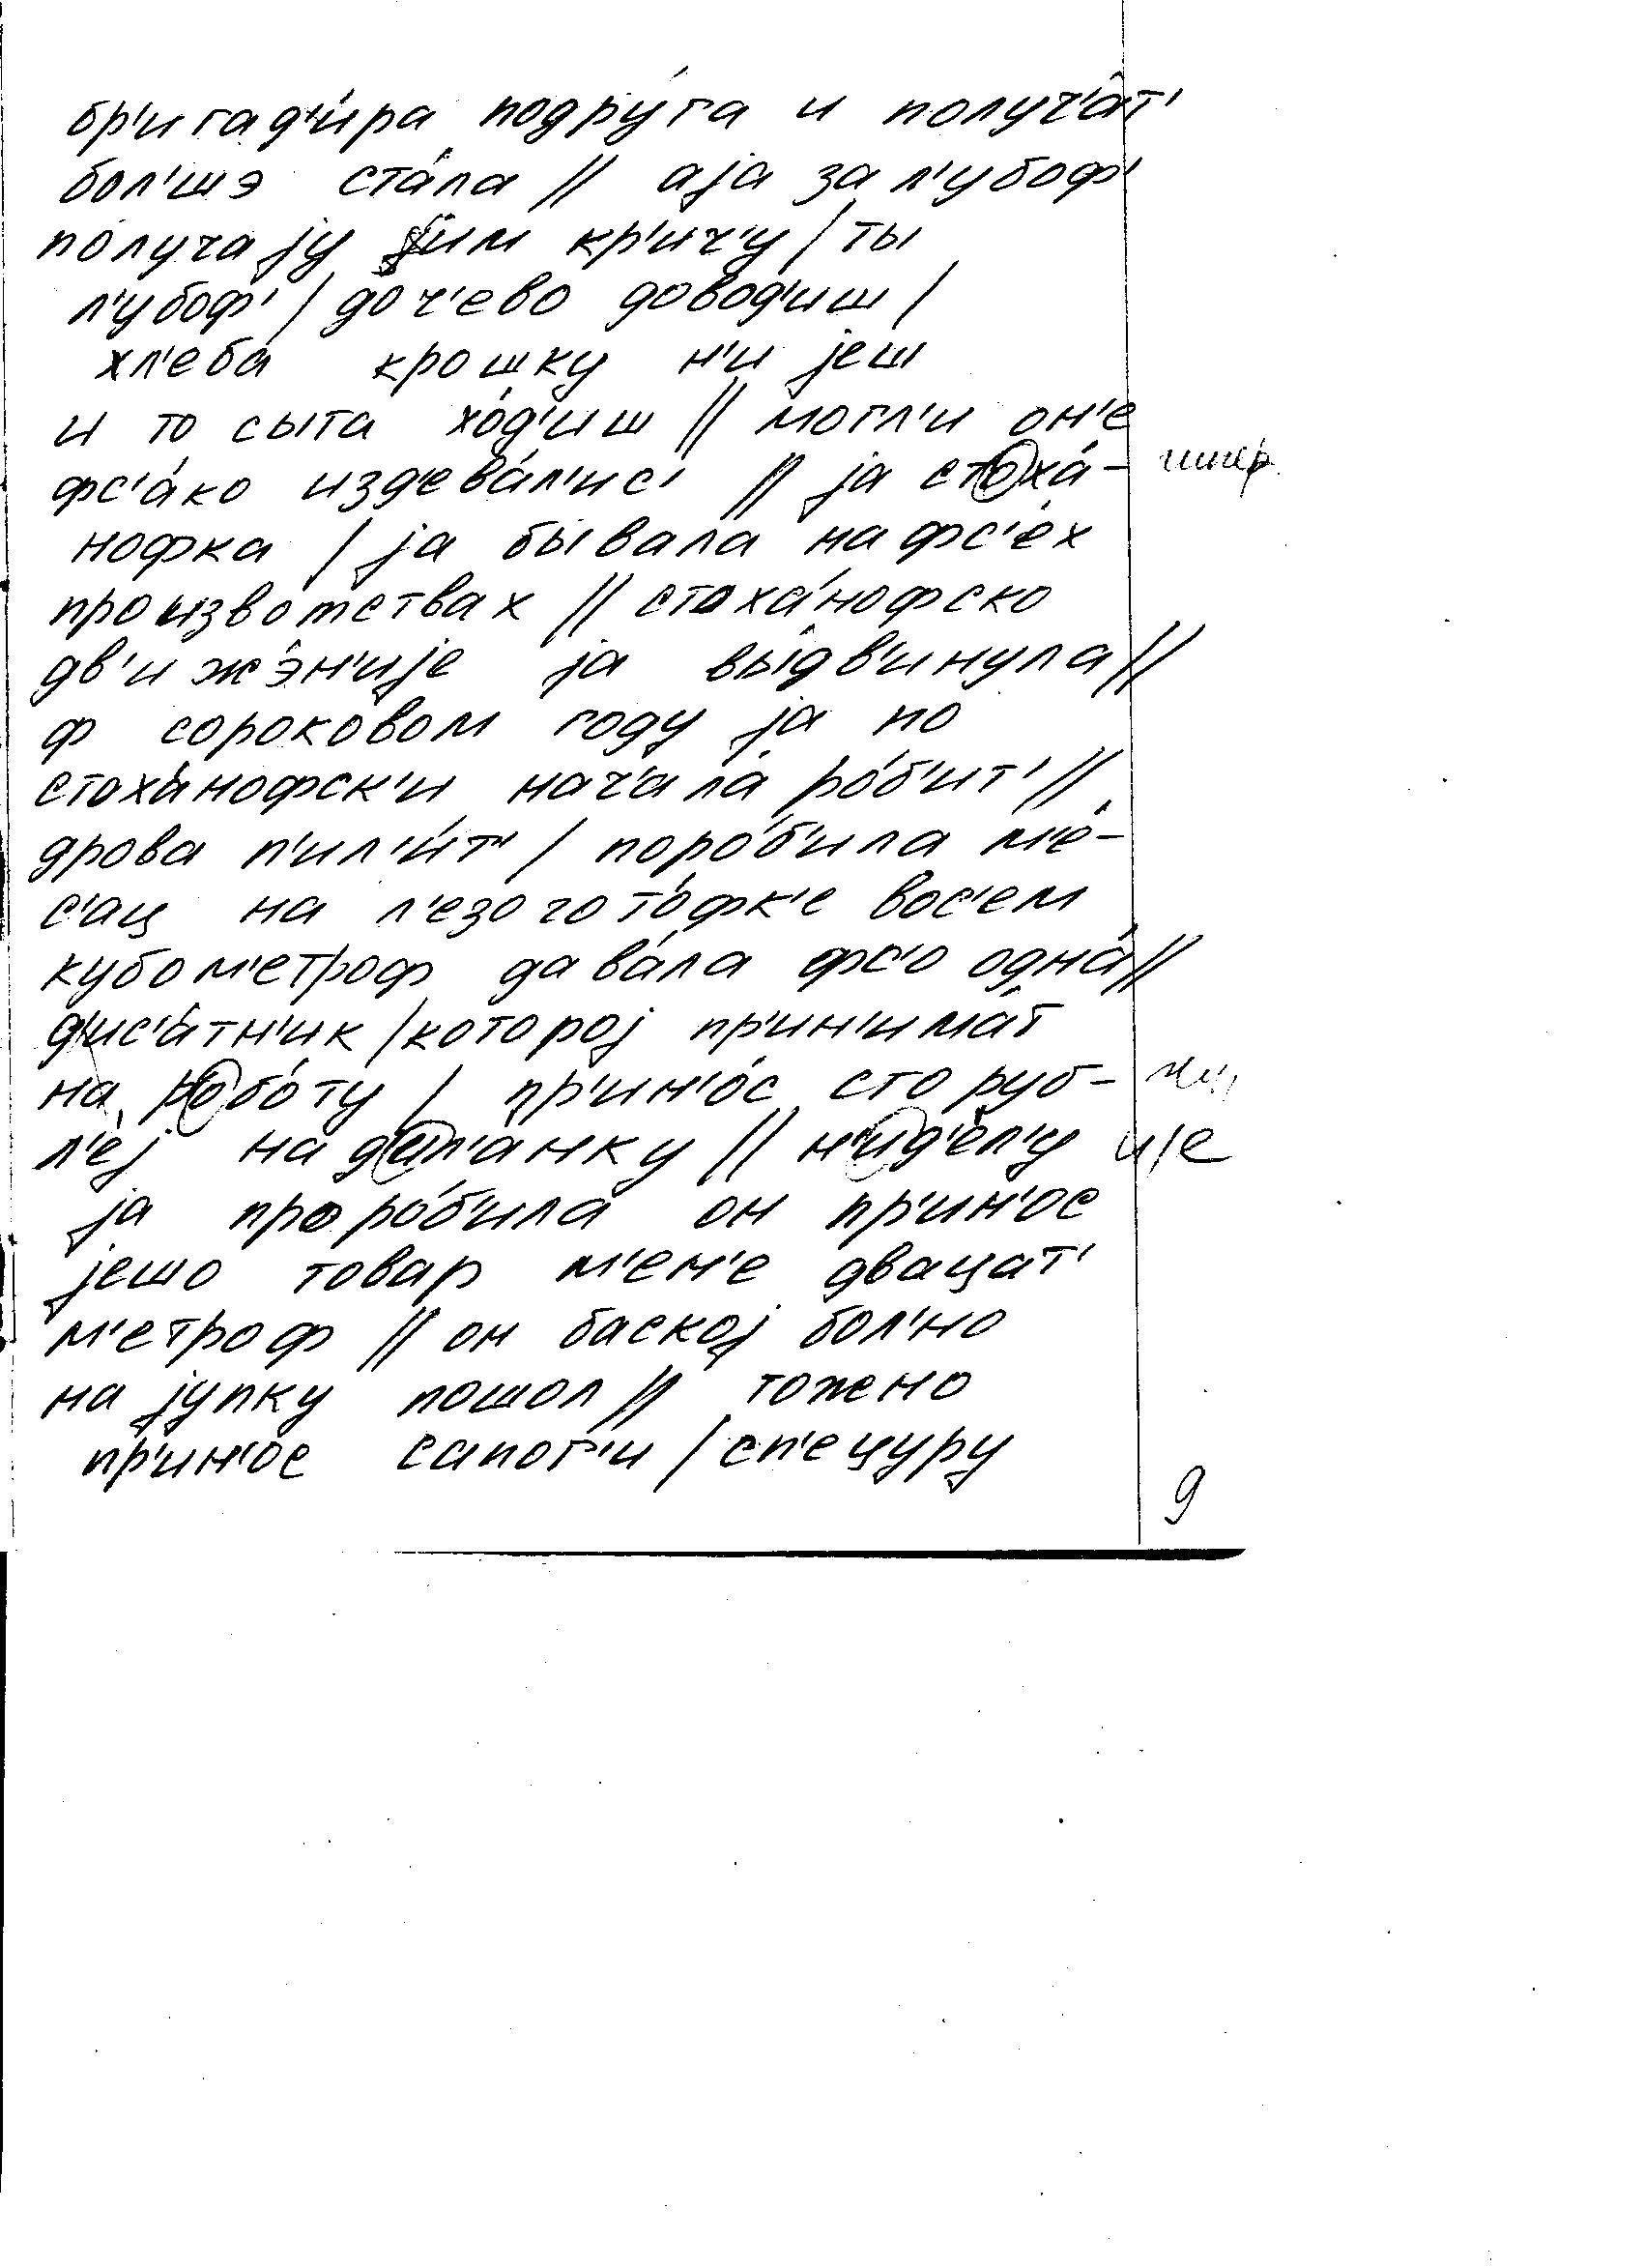 бр'игад'и́ра подру́га и получ'а́т'
бол'шэ ста́ла // аја за л'убоф'
получају јим кр'ич'у / ты
л'убоф' / доч'ево довод'иш /
хл'еба́ крошку н'и јеш
и то сыта хо́д'иш // могл'и он'е
фс'а́ко издева́л'ис' // ја стоха́-
нофка / ја бы́вала на фс'ех
произво́тствах // стоха́нофско
дв'ижэ́н'ије ја вы́дв'инула //
ф сороковом году ја по
стоха́нофск'и нач'ала́ ро́б'ит' //
дрова п'ил'и́т' / поро́б'ила м'е́-
с'ац на л'езогото́фк'е вос'ем
кубом'етроф дава́ла фс'о одна́ //
д'ис'а́тн'ик / которој пр'ин'има́т
на робо́ту / пр'ин'о́с сто руб-
л'е́ј на дил'а́нку // н'ид'е́л'у и/е
ја проро́б'ила он пр'ин'ос
јешо товар м'ен'е двацат'
м'етроф // он баској бол'но
на јупку пошол // тожено
пр'ин'ос сапог'и / сп'ецуру
9